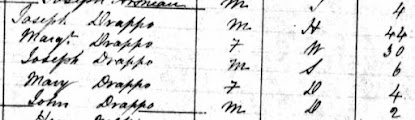 Joseph
Joseph Drappo M H 44
Margt. Drappo F W 30
Joseph Drappo M S 6
Mary Drappo F D 4
John Drappo M D 2